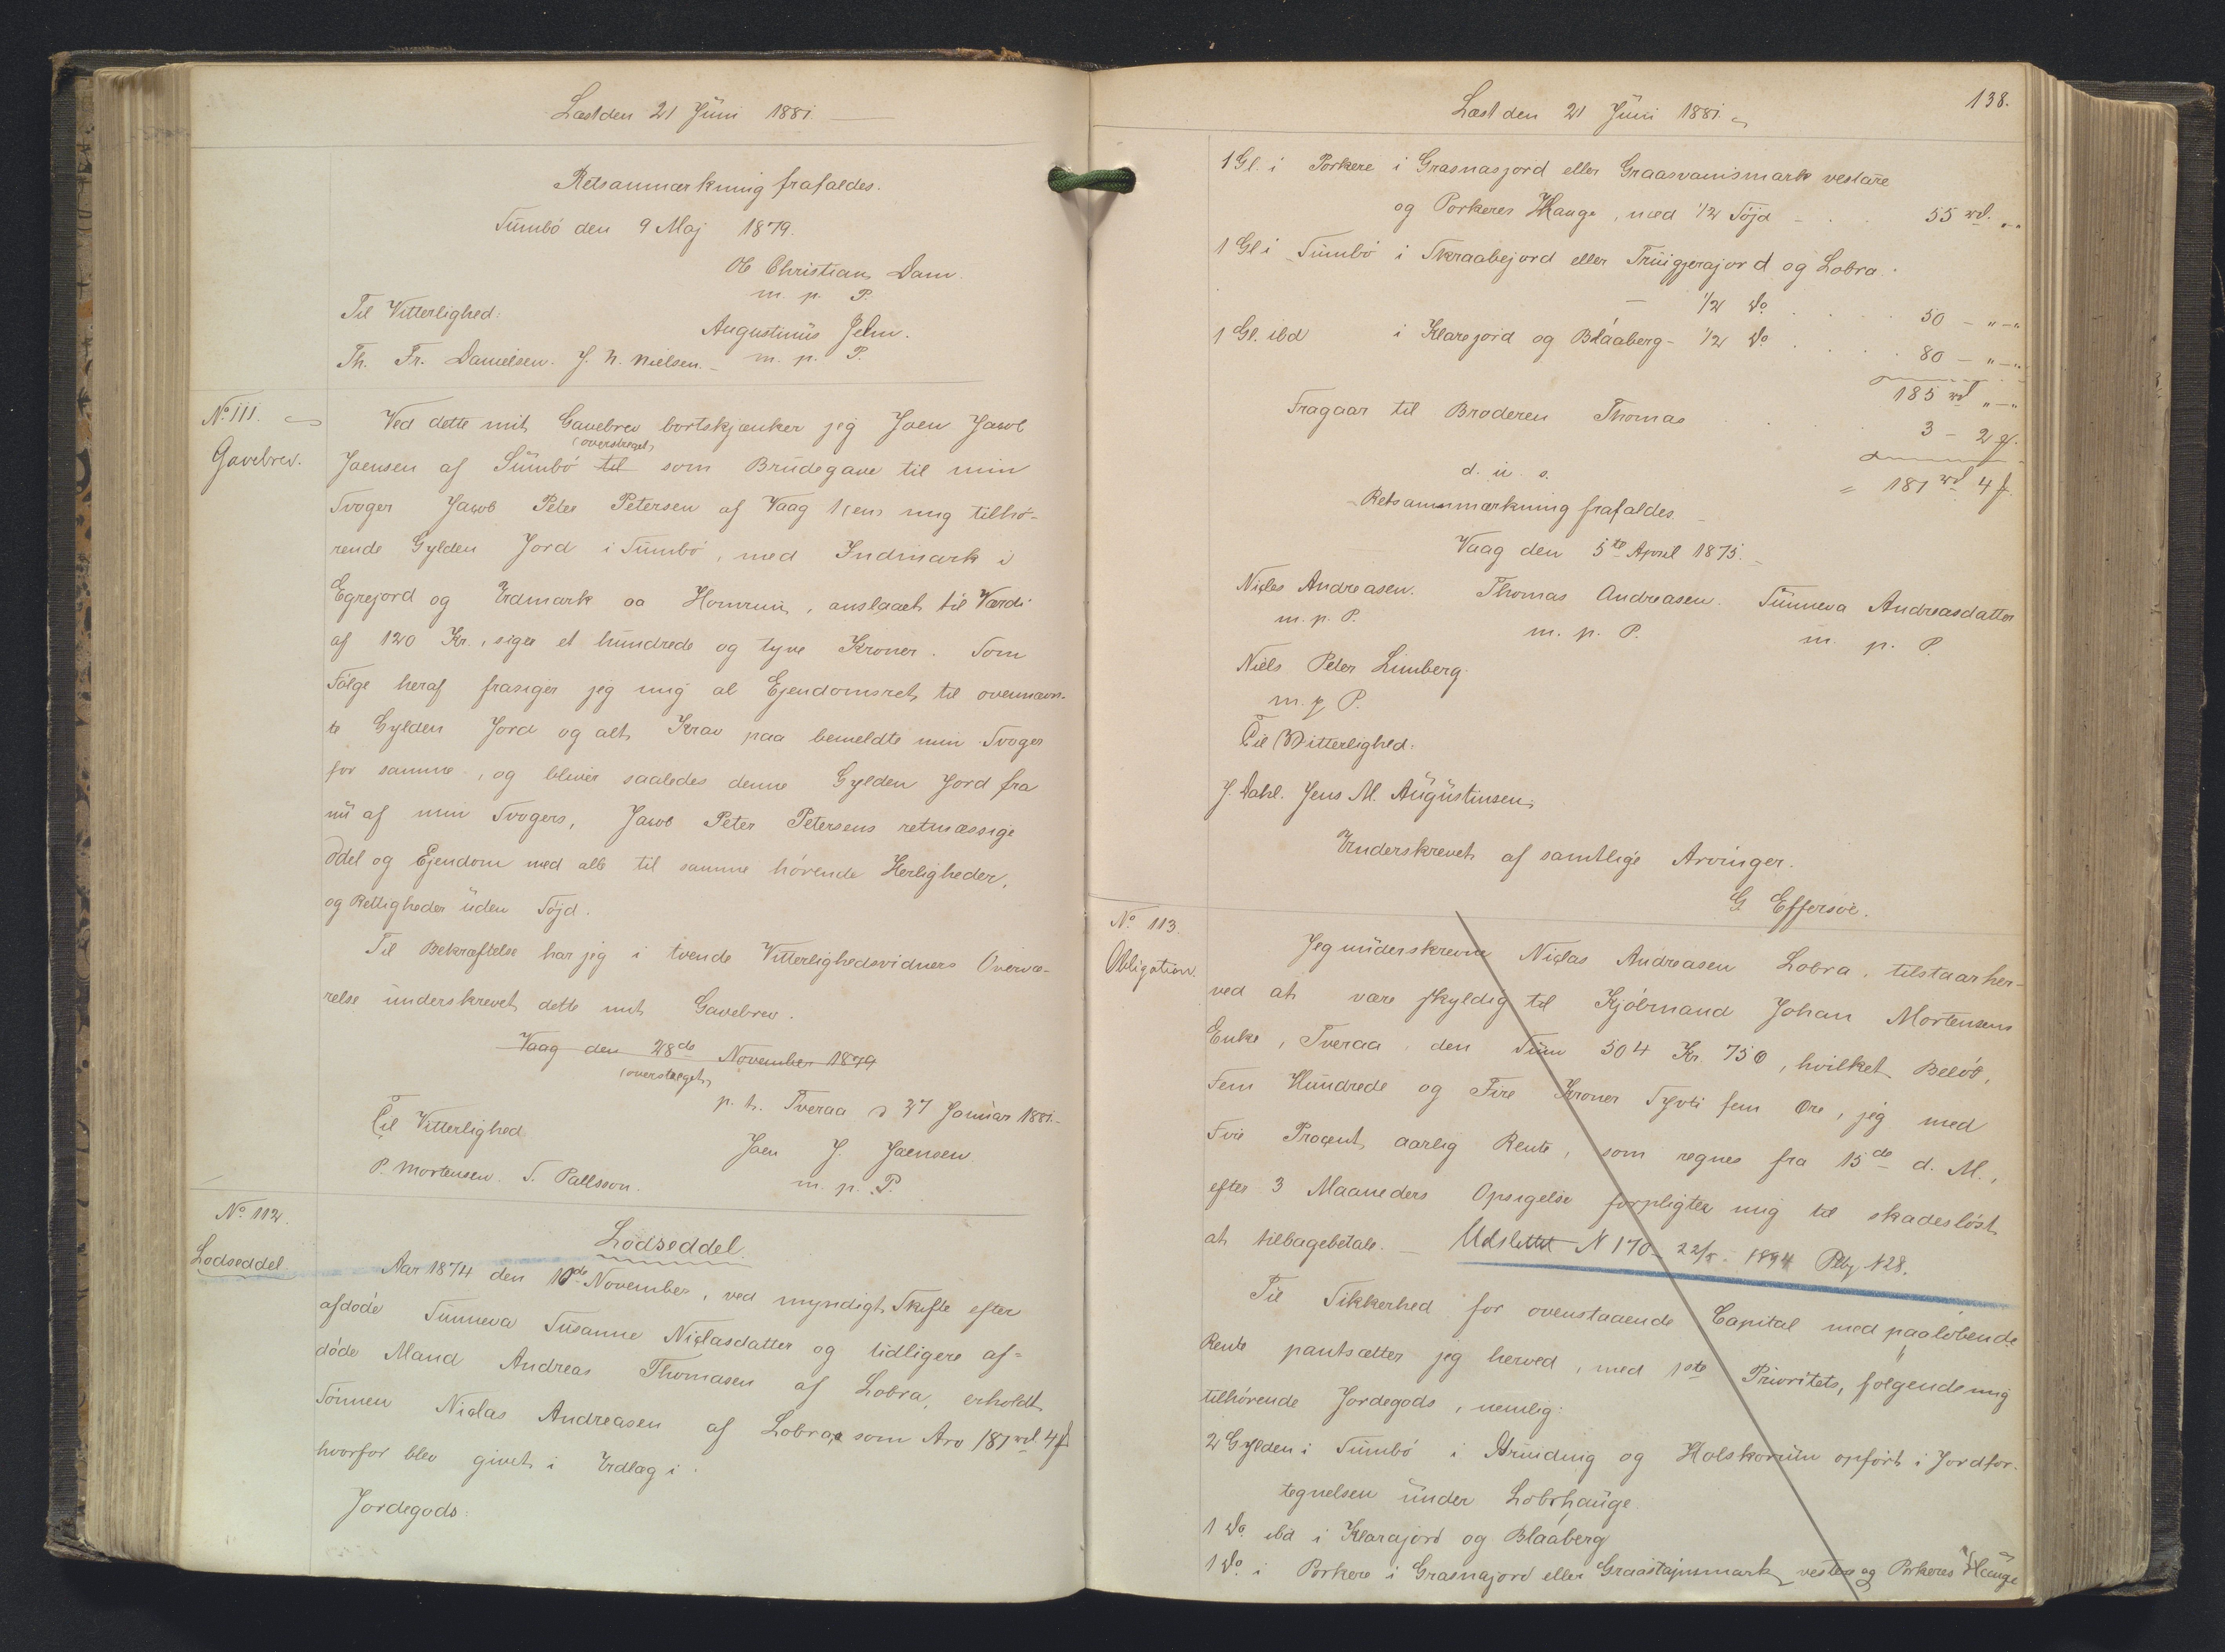 Læst den 21 Juni 1881.
Retsanmærkning frafaldes.
Sumbø den 9 Maj 1879.
Ole Christian Dam.
m. p. P.
Til Vitterlighed:
Augustinus Jelm.
Th. Fr. Danielsen. J. N. Nielsen. m. p. P.
No 111.
Gavebrev.
Ved dette mit Gavebrev bortskjænker jeg Joen Jacob
(overstreget)
Joensen af Sumbø til som Brudegave til min
Svoger Jacob Peter Petersen af Vaag 1(en) mig tilhø-
rende Gylden Jord i Sumbø, med Indmark i
Egrejord og Udmark aa Homrum, anslaaet til Værdi
af 120 Kr., siger et hundrede og tyve Kroner. Som
Følge heraf frasiger jeg mig al Ejendomsret til ovennævn-
te Gylden Jord og alt Krav paa bemeldte min Svoger
for samme, og bliver saaledes denne Gylden Jord fra
nu af min Svogers, Jacob Peter Petersens retmæssige
Odel og Ejendom med alle til samme hørende Herligheder,
og Rettigheder uden Tøjd.
Til Bekræftelse har jeg i tvende Vitterlighedsvidners Overvæ-
relse underskrevet dette mit Gavebrev.
Vaag den 28de November 1879
(overstreget)
p. t. Tveraa d 27 Januar 1881.
Til Vitterlighed
Joen J. Joensen
P. Mortensen. S. Pallsson.
m. p. P.
No 112.
Lodseddel
Lodseddel.
Aar 1874 den 10de November, ved myndigt Skifte efter
afdøde Sunneva Susanne Niclasdatter og tidligere af=
døde Mand Andreas Thomasen af Lobra, erholdt
Sønnen Niclas Andreasen af Lobra, som Arv 181 rd. 4 f
hvorfor blev givet i Udlæg i.
Jordegods:
138.
Læst den 21 Juni 1881.
1 Gl. i Porkere i Grasnasjord eller Graasvanismark vestare
og Porkeres Hauge, med 1/2 Tøjd - 55 rd. "
1 Gl i Sumbø i Skraabejord eller Truigjerajord og Lobra.
- 1/2 do 50 - " - "
1 Gl. ibd i Klarejord og Blaaberg - 1/2 do 80 - " - "
185 rd " - "
Fragaar til Broderen Thomas 3 - 2 f.
d. u. s. = 181 rd 4 f.
Retsanmærkning frafaldes.
Vaag den 5te April 1875.
Niclas Andreasen. Thomas Andreasen. Sunneva Andreasdatter
m. p. P. m. p. P. m. p. P.
Niels Peter Limberg.
m. p P.
Til Vitterlighed:
J. Dahl. Jens M. Augustinsen.
Underskrevet af samtlige Arvinger.
G Effersøe.
No 113.
Obligation.
Jeg underskrevne Niclas Andreasen Lobra, tilstaar her-
ved at være skyldig til Kjøbmand Johan Mortensens
Enke, Tveraa, den Sum 504 Kr. 75 Ø, hvilket Beløb,
Fem Hundrede og Fire Kroner Syvti fem Øre, jeg med
Fire Procent aarlig Rente, som regnes fra 15de d. M.,
efter 3 Maaneders Opsigelse forpligter mig til skadesløst
at tilbagebetale. — Udslettet N 170 22/5 1894 Pbg N 28.
Til Sikkerhed for ovenstaaende Capital med paaløbende
Rente pantsætter jeg herved, med 1ste Prioritets, følgende mig
tilhørende Jordegods, nemlig:
2 Gylden i Sumbø i Grunding og Holskorum opført i Jordfor-
tegnelsen under Lobrhauge.
1 do. ibd i Klarajord og Blaaberg
1 do. i Porkere i Grasnajord eller Graastajnsmark vestare og Porkeres Hauge